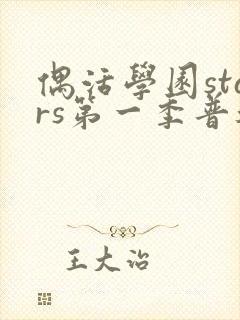 偶活學園sta
rs第一季普
王大治